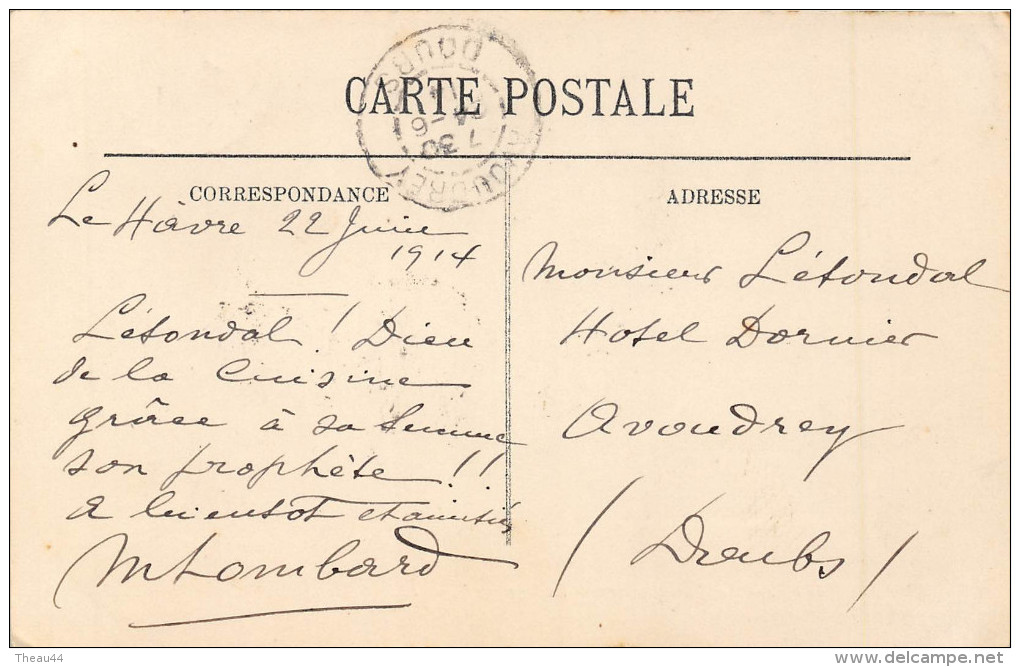 CARTE POSTALE
AVOUDREY
DOUBS
7 30
24 -6
14
CORRESPONDANCE
ADRESSE
Le Hâvre 22 Juin
1914
Létondal ! Dieu
de la Cuisine
grâce à sa femme
son prophète !!
a bientôt et amitiés
M Lombard
Monsieur Létondal
Hotel Dornier
Avoudrey
(Doubs)
Theau44
delcampe.net